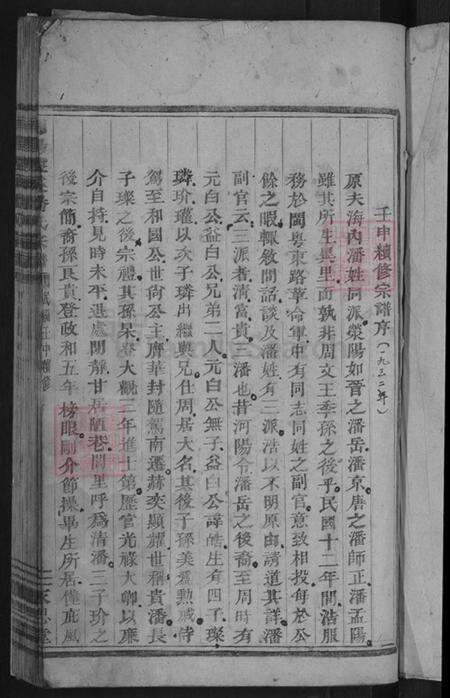 壬申續修宗譜序(一九三二年)
原夫海內潘姓同派滎陽如晉之潘岳潘京唐之潘師正潘孟陽
雖其所生異里而孰非周文王季孫之後乎民國十二年間浩服
務於閩粵東路革命軍中有同志同姓之副官意致相投每於公
餘之暇輒敘間話談及潘姓有三派浩以不明原由請道其詳潘
副官云三派者清富貴三潘也昔河陽令潘岳之後裔至周時有
元白公益白公兄弟二人元白公無子益白公諱皓生有四子璨
璘玠瓘以次子璘出繼與兄仕周居大名其後于孫美臺勲戚侍
駕至和國公世尚公主膺華封隨駕南遷赫奕顯耀世稱貴潘長
子璨之後宗禮其孫杲春大觀三年進士第歷官光祿大卿以廉
介自持見時未平進處閒散甘居陋巷閭里呼爲清潘三子玠之
後宗簡裔孫良貴登政和五年榜眼剛介節操畢生所居僅庇風